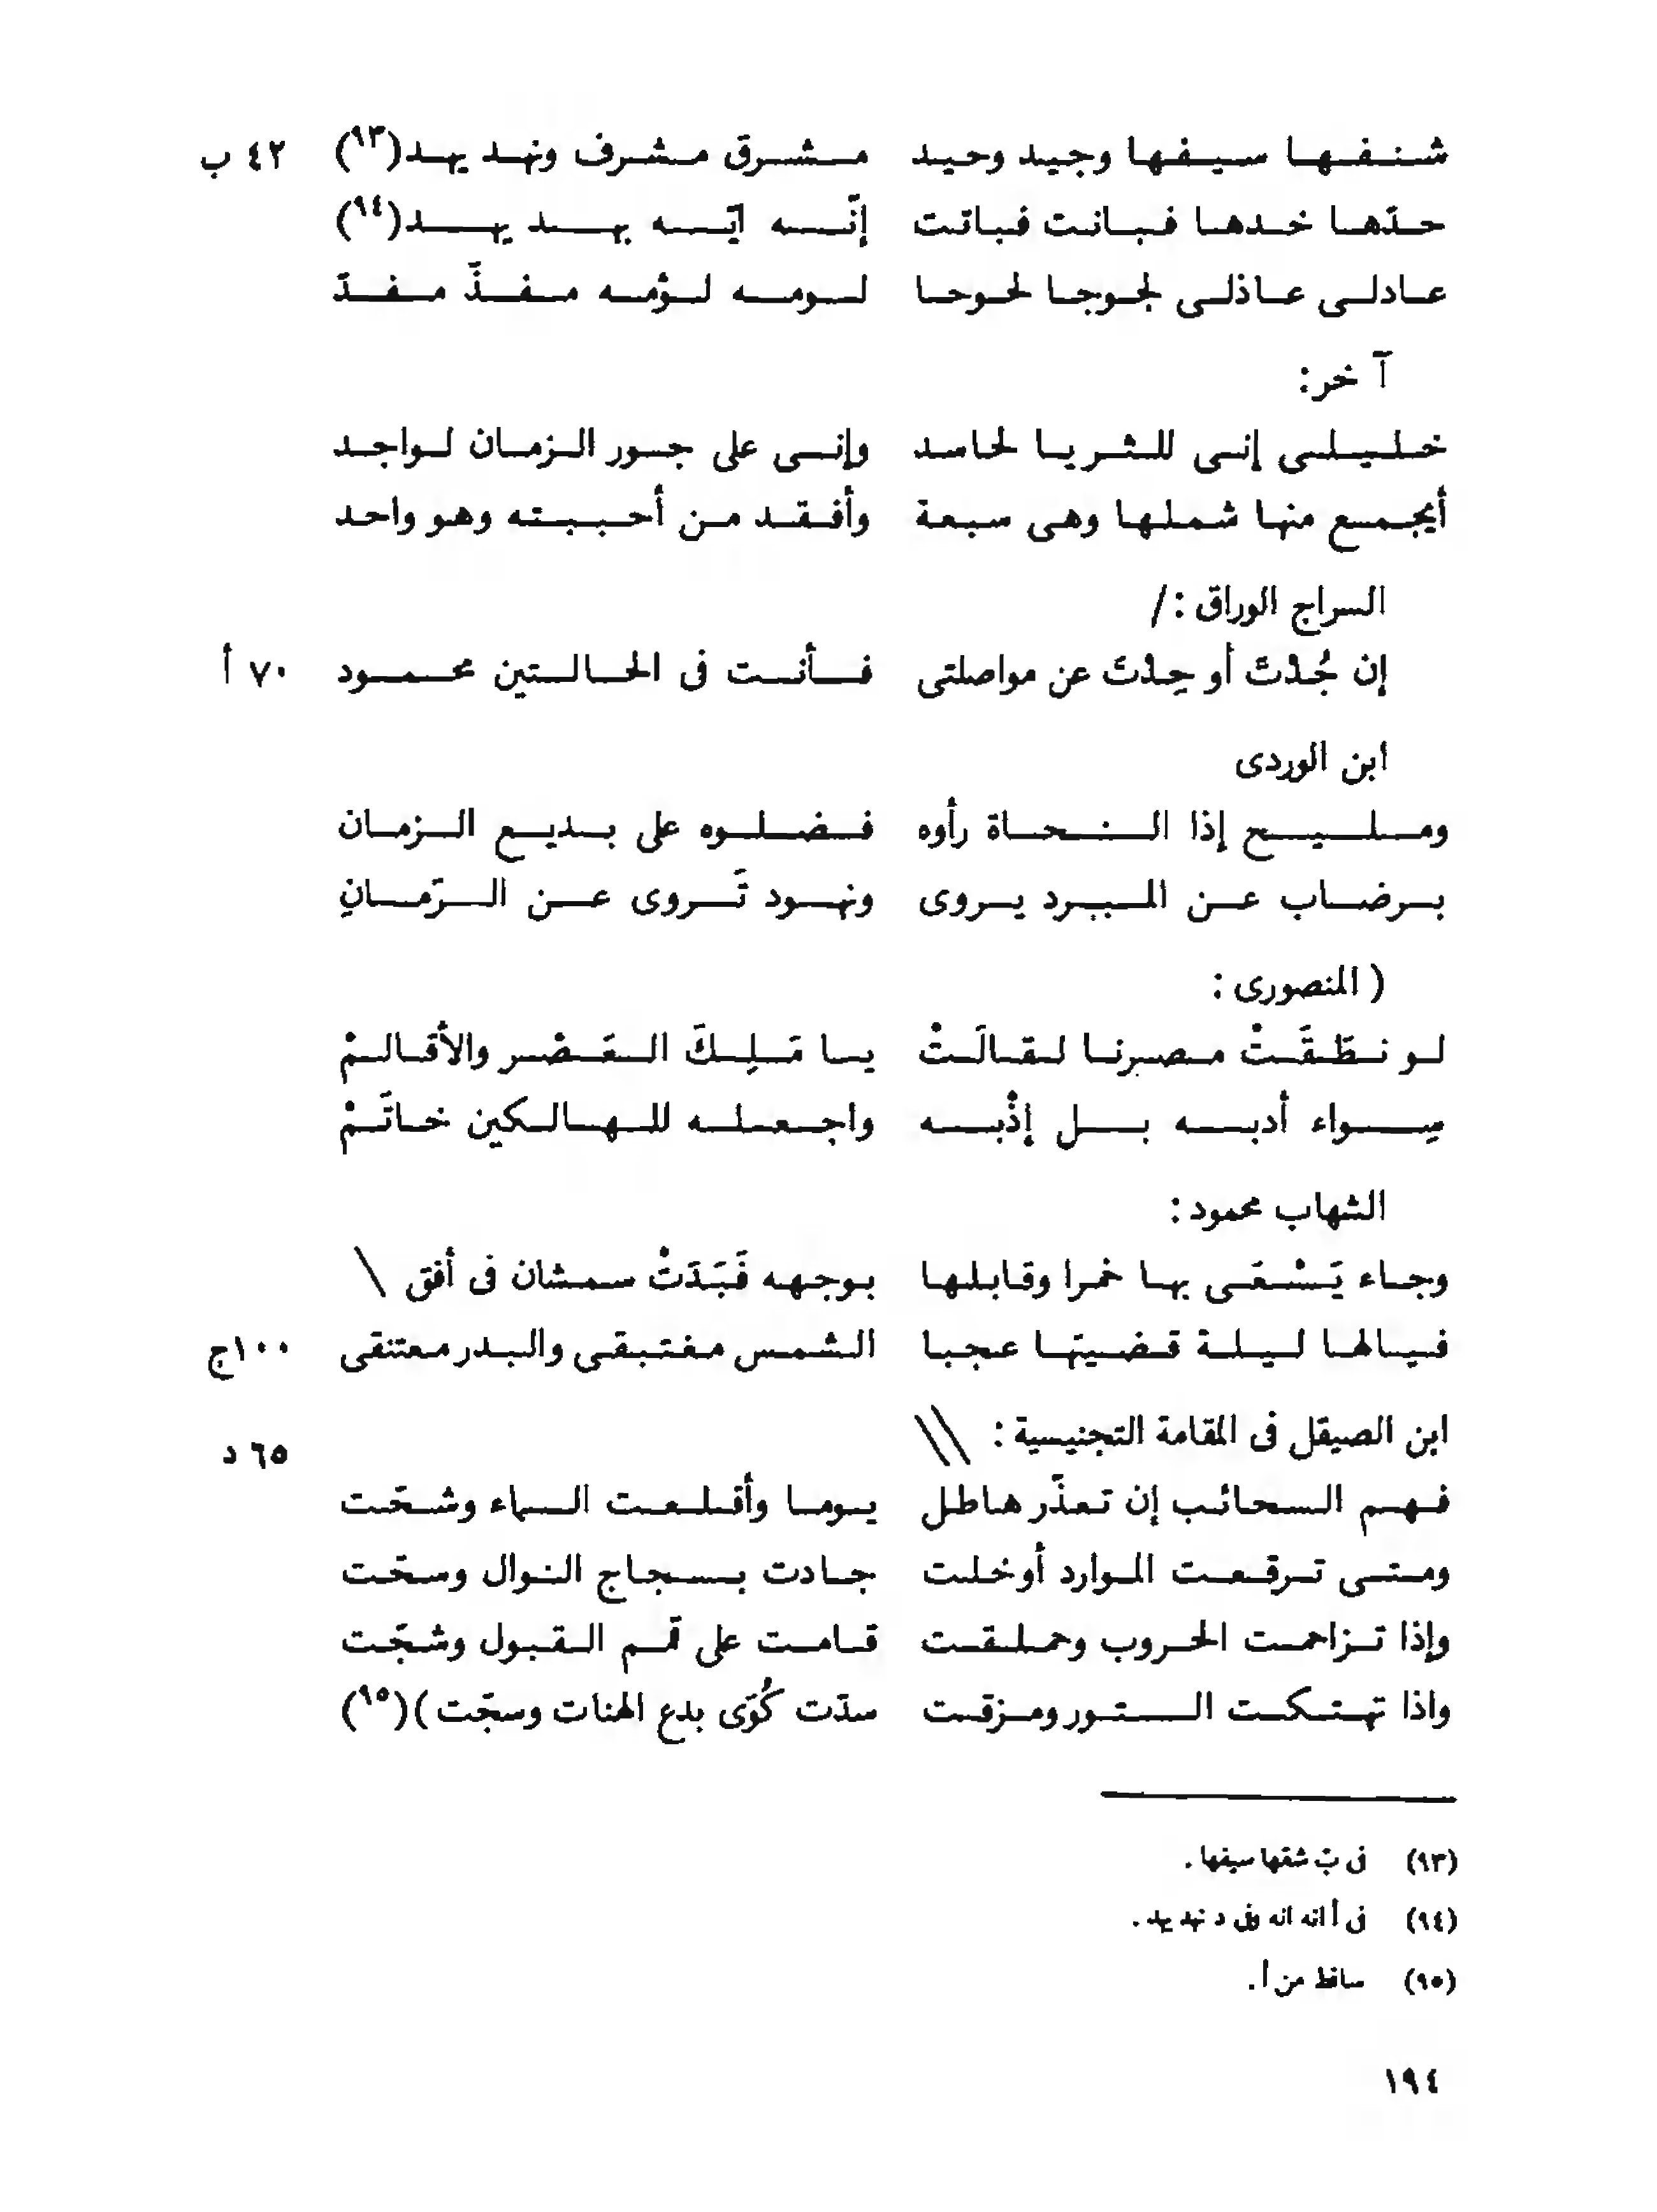 شنفها سيفها وجيد وحيد مشرق مشرف ونهد يهد(٩٣) ٤٢ ب
حدّها خدها فبانت فباتت إنّه ايّه بهد يهد(٩٤)
عادلى عاذلى لجوجا لحوحا لومه لؤمه مفذّ مفدّ
آخر:
خليلى إنى للثريا لحاسد وإنى على جور الزمان لواجد
أيجمع منها شملها وهى سبعة وأفقد من أحببته وهو واحد
السراج الوراق :/
إن جُدْتَ أو حِدْتَ عن مواصلتى فأنت فى الحالتين محمود ٧٠ أ
ابن الوردى
ومليح إذا النحاة رأوه فضلوه على بديع الزمان
برضاب عن المبرد يروى ونهود تَروى عن الرّمانِ
( المنصورى :
لو نطَقَتْ مصرنا لقالَتْ يا مَلِكَ العَصْر والأقالمْ
سِواء أدبه بل إذْبه واجعله للهالكين خاتَمْ
الشهاب محمود :
وجاء يَسْعَى بها خمرا وقابلها بوجهه فَبَدَتْ سمشان فى أفق \
فيالها ليلة قضيتها عجبا الشمس مغتبقى والبدر معتنقى ١٠٠ج
ابن الصيقل فى المقامة التجنيسية : \\ ٦٥ د
فهم السحائب إن تعذّر هاطل يوما وأقلعت السماء وشحّت
ومتى ترقعت الموارد أو خلت جادت بسجاج النوال وسحّت
وإذا تزاحمت الحروب وحملقت قامت على قمم القبول وشجّت
واذا تهتكت الستور ومزقت سدّت كُوَى بدع الهنات وسجّت )(٩٥)
(٩٣) فى ب شقها سيفها .
(٩٤) فى أ انه انه وفى د نهد يهد .
(٩٥) ساقط من أ .
١٩٤